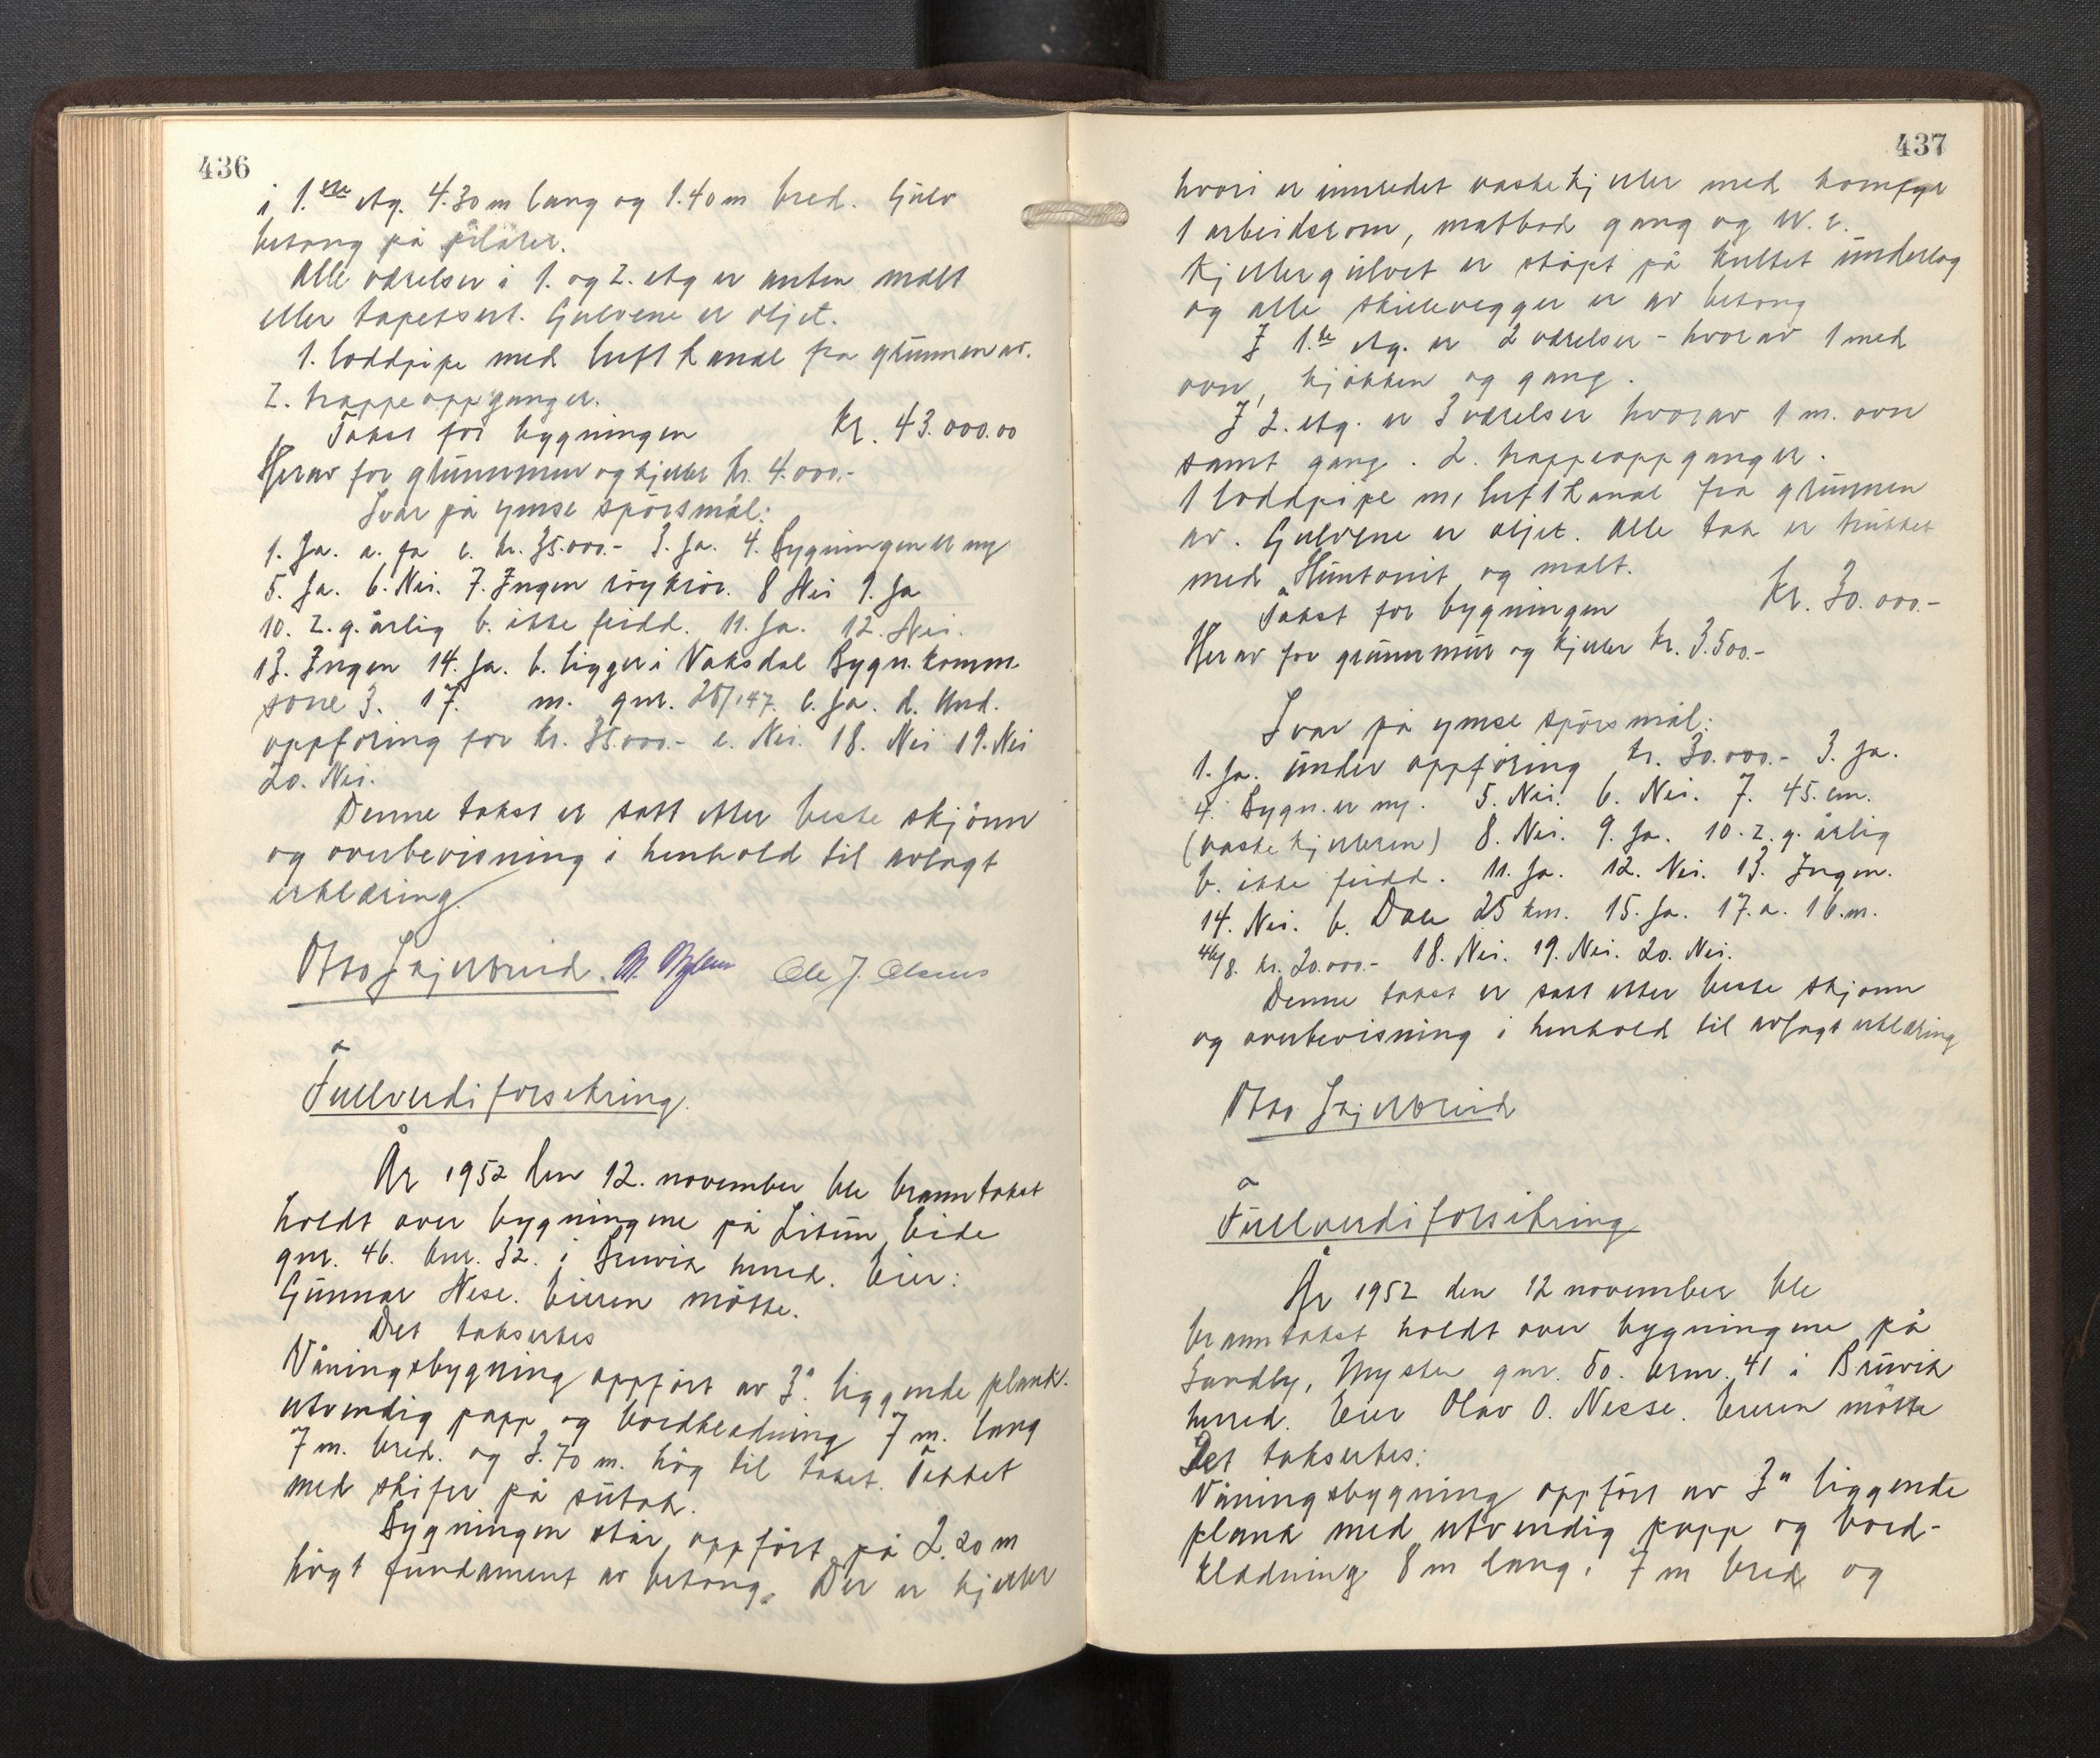 436
i 1.ste etg. 4.30 m lang og 1.40 m bred. Gulv
betong på pilarer.
Alle værelser i 1. og 2. etg er enten malt
eller tapetsert. Gulvene er oljet.
1. loddpipe med luftkanal fra grunnen av.
2. trappeoppganger.
Takst for bygningen kr. 43.000.00
Herav for grunnmur og kjeller kr. 4.000.-
Svar på ymse spörsmål:
1. Ja. a. Ja c. kr. 35.000.- 3. Ja. 4. Bygningen er ny
5. Ja. 6. Nei. 7. Ingen röykrör. 8 Nei 9. Ja
10. 2. g. årlig b. ikke feidd. 11. Ja. 12. Nei.
13. Ingen 14. Ja. b. ligger i Vaksdal Bygn. komm
sone 3. 17. m. gnr. 25/147. c. Ja. d. Und.
oppföring for kr. 35.000.- e. Nei. 18. Nei 19. Nei
20. Nei.
Denne takst er satt etter beste skjönn
og overbevisning i henhold til avlagt
erklæring.
Otto Skjerveid. Ole J. Olsnes
Fullverdiforsikring.
År 1952 den 12. november ble branntakst
holdt over bygningene på Litun, Eide
gnr. 46. bnr. 32. i Bruvik herred. Eier:
Gunnar Nese. Eieren mötte.
Det takseres
Våningsbygning oppfört av 3" liggende plank.
utvendig papp og bordkledning 7 m. lang
7 m. bred. og 3.70 m. hög til taket. Tekket
med skifer på sutak.
Bygningen står oppfört på 2.20 m
högt fundament av betong. Der er kjeller
437
hvori er innredet vaskekjeller med komfyr
1 arbeidsrom, matbod gang og W.c.
Kjellergulvet er stöpt på kultet underlag
og alle skillevegger er av betong
I 1.ste etg. er 2 værelser - hvorav 1 med
ovn, kjökken og gang.
I 2. etg. er 3 værelser hvorav 1 m. ovn
samt gang. 2. trappeoppganger.
1 loddpipe m, luftkanal fra grunnen
av. Gulvene er oljet. Alle tak er trukket
med Huntonit og malt.
Takst for bygningen kr. 30.000.-
Herav for grunnmur og kjeller kr. 3.500.-
Svar på ymse spörsmål:
1. Ja. under oppföring kr. 30.000.- 3. Ja.
4. Bygn. er ny. 5. Nei. 6. Nei. 7. 45. cm.
(vaskekjelleren) 8. Nei. 9. Ja. 10. 2. g. årlig
b. ikke feidd. 11. Ja. 12. Nei. 13. Ingen.
14. Nei. b. Dale 25 km. 15. Ja. 17. a. 16. m.
46/8. kr. 20.000.- 18. Nei. 19. Nei. 20. Nei.
Denne takst er satt etter beste skjönn
og overbevisning i henhold til avlagt erklæring
Otto Skjerveid
Fullverdiforsikring
År 1952 den 12 november ble
branntakst holdt over bygningene på
Sandby, Myster gnr. 50. brnr. 41 i Bruvik
herred. Eier Olav O. Nesse. Eieren mötte
Det takseres:
Våningsbygning oppfört av 3" liggende
plank med utvendig papp og bord-
kledning 8 m lang. 7 m bred og